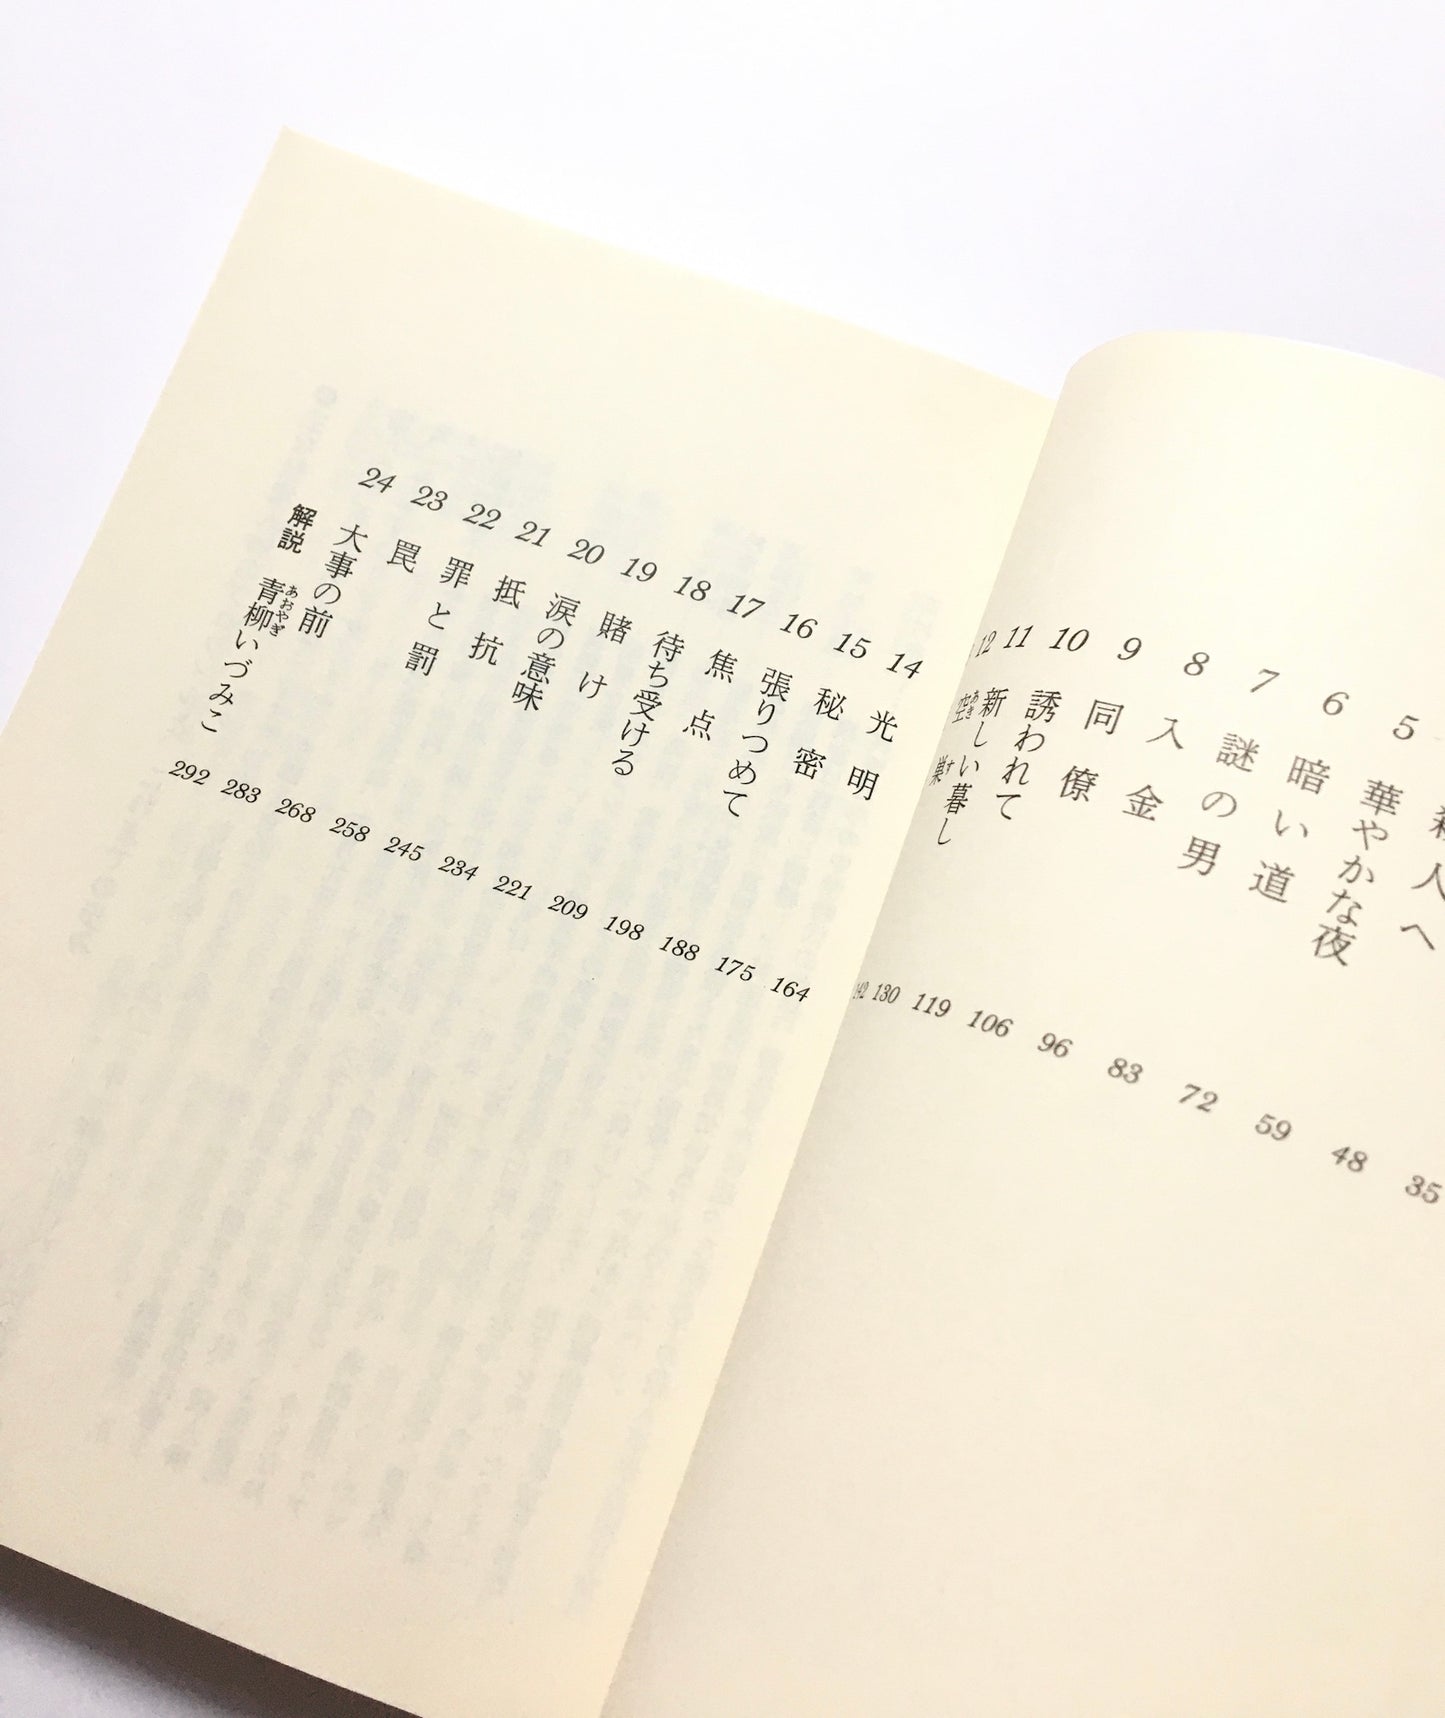 35
人へ 48
5 華やかな夜 59
6 暗い道 72
7 謎の男 83
8 入金 96
9 同僚 106
10 誘われて 119
11 新しい暮し 130
12 空巣 142
あきす
14 光明 164
15 秘密 175
16 張りつめて 188
17 焦点 198
18 待ち受ける 209
19 賭け 221
20 涙の意味 234
21 抵抗 245
22 罪と罰 258
23 罠 268
24 大事の前 283
解説 青柳いづみこ 292
あおやぎ